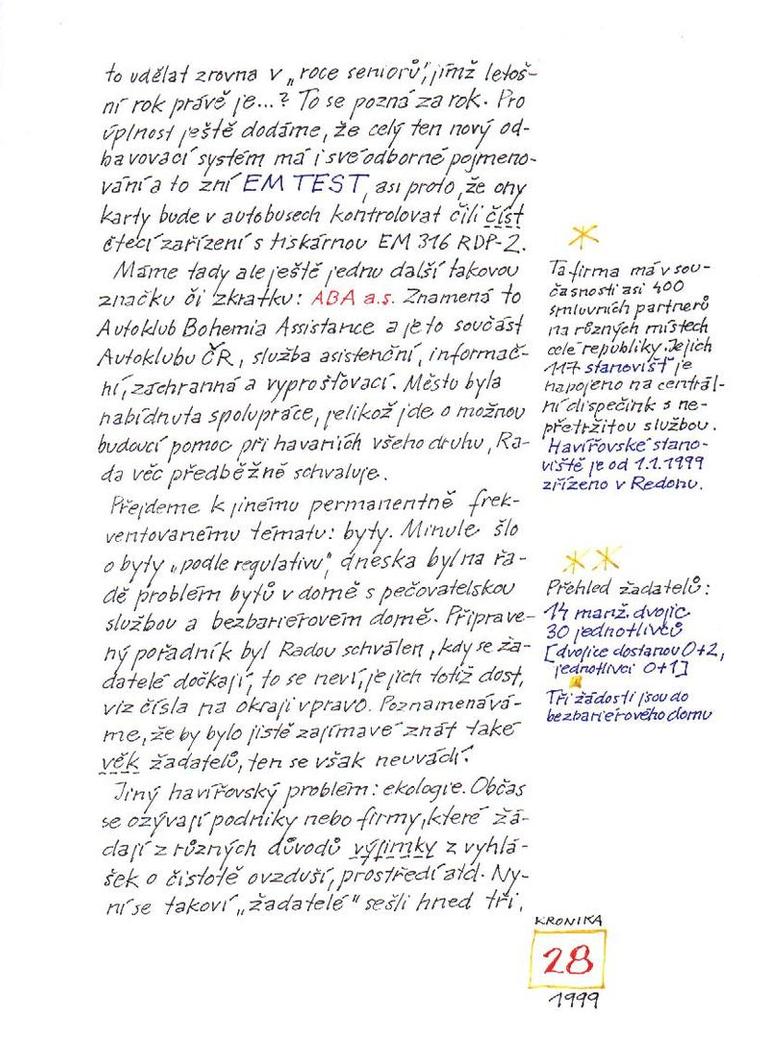 to udělat zrovna v „roce seniorů“, jímž letoš-
ní rok právě je...? To se pozná za rok. Pro
úplnost ještě dodáme, že celý ten nový od-
bavovací systém má i své odborné pojmeno-
vání a to zní EM TEST, asi proto, že ony
karty bude v autobusech kontrolovat čili číst
čtecí zařízení s tiskárnou EM 316 RDP-2.
Máme tady ale ještě jednu další takovou
značku či zkratku: ABA a.s. Znamená to
Autoklub Bohemia Assistance a je to součást
Autoklubu ČR, služba asistenční, informač-
ní, záchranná a vyprošťovací. Městu byla
nabídnuta spolupráce, jelikož jde o možnou
budoucí pomoc při haváriích všeho druhu, Ra-
da věc předběžně schvaluje.
Přejdeme k jinému permanentně frek-
ventovanému tématu: byty. Minule šlo
o byty „podle regulativu“, dneska byl na řa-
dě problém bytů v domě s pečovatelskou
službou a bezbariérovém domě. Připrave-
ný pořadník byl Radou schválen, kdy se ža-
datelé dočkají, to se neví, je jich totiž dost,
viz čísla na okraji vpravo. Poznamenává-
me, že by bylo jistě zajímavé znát také
věk žadatelů, ten se však neuvádí.
Jiný havířovský problém: ekologie. Občas
se ozývají podniky nebo firmy, které žá-
dají z různých důvodů výjimky z vyhlá-
šek o čistotě ovzduší, prostředí atd. Ny-
ní se takoví „žadatelé“ sešli hned tři,
Ta firma má v sou-
časnosti asi 400
smluvních partnerů
na různých místech
celé republiky. Jejich
117 stanovišť je
napojeno na centrál-
ní dispečink s ne-
přetržitou službou.
Havířovské stano-
viště je od 1.1.1999
zřízeno v Redonu.
Přehled žadatelů:
14 manž. dvojic
30 jednotlivců
[dvojice dostanou 0+2,
jednotlivci 0+1]
Tři žádosti jsou do
bezbariérového domu
KRONIKA
28
1999